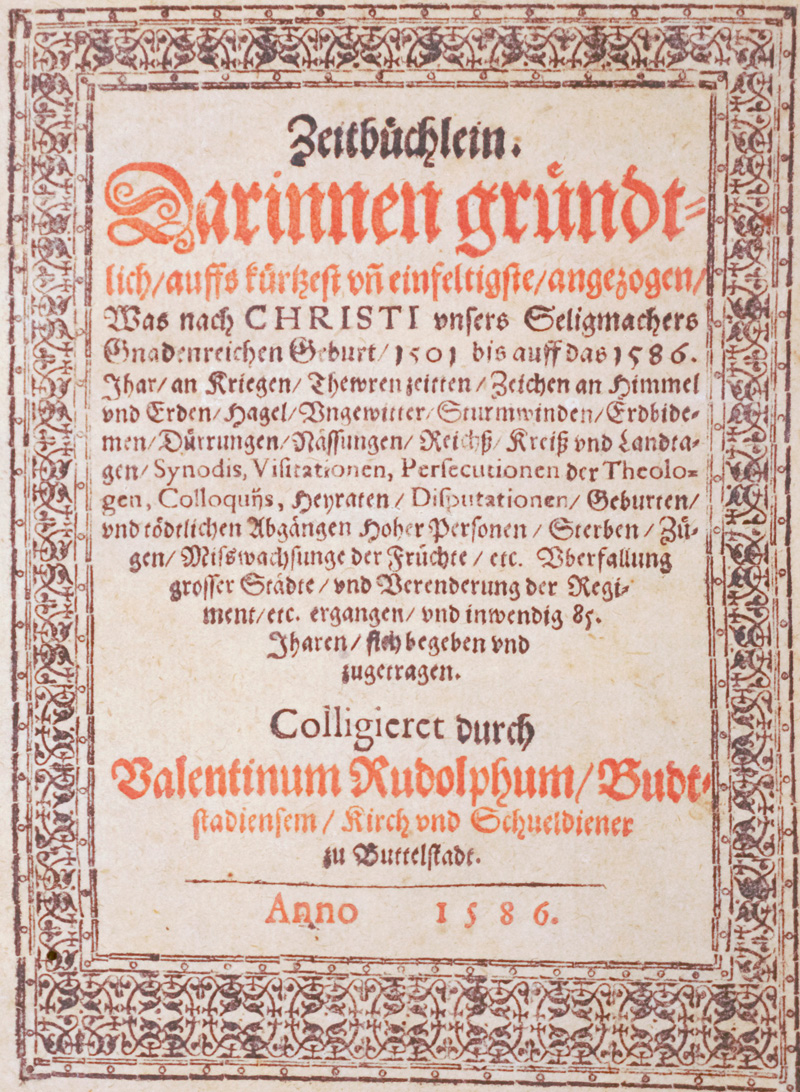 Zeitbüchlein.
Darinnen gründt⸗
lich/auffs kürtzest vñ einfeltigste/angezogen/
Was nach CHRISTI vnsers Seligmachers
Gnadenreichen Geburt/1501 bis auff das 1586.
Jhar/an Kriegen/Thewren zeitten/Zeichen an Himmel
vnd Erden/Hagel/Vngewitter/Sturmwinden/Erdbide⸗
men/Dürrungen/Nässungen/Reichß/Kreiß vnd Landta⸗
gen/Synodis, Visitationen, Persecutionen der Theolo⸗
gen, Colloquijs, Heyraten/Disputationen/Geburten/
vnd tödtlichen Abgängen Hoher Personen/Sterben/Zü⸗
gen/Misswachsunge der Früchte/etc. Vberfallung
grosser Städte/vnd Verenderung der Regi⸗
ment/etc. ergangen/vnd inwendig 85.
Jharen/sich begeben vnd
zugetragen.
Colligieret durch
Valentinum Rudolphum/Budt⸗
stadiensem/Kirch vnd Schueldiener
zu Buttelstadt.
Anno 1586.